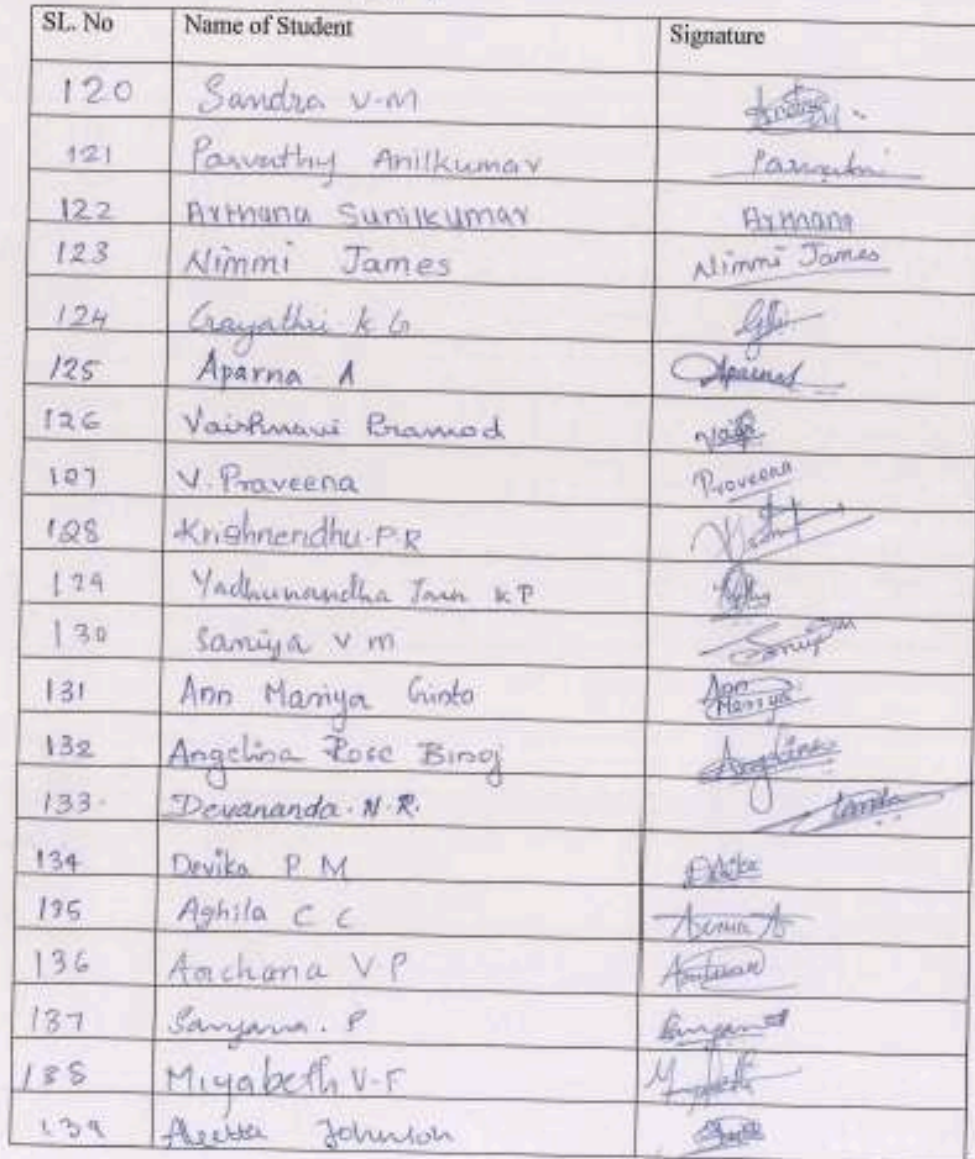 SL. No Name of Student Signature
120 Sandra V.M
121 Parvathy Anilkumar Parvathi
122 Archana Sunilkumar Archana
123 Nimmi James Nimmi James
124 Gayathri K G
125 Aparna A Aparna
126 Vaishnavi Pramod
127 V. Praveena Praveena
128 Krishnendhu.P.R
129 Yadhunandha Jain K P
130 Saniya V M Saniya
131 Ann Mariya Ginto Ann Mariya
132 Angelina Rose Binoj Angelina
133. Devananda.N.R.
134 Devika P M Devika
135 Aghila C C
136 Archana V P
137 Sanjana. P
138 Miyabeth V-F
139 Johnson